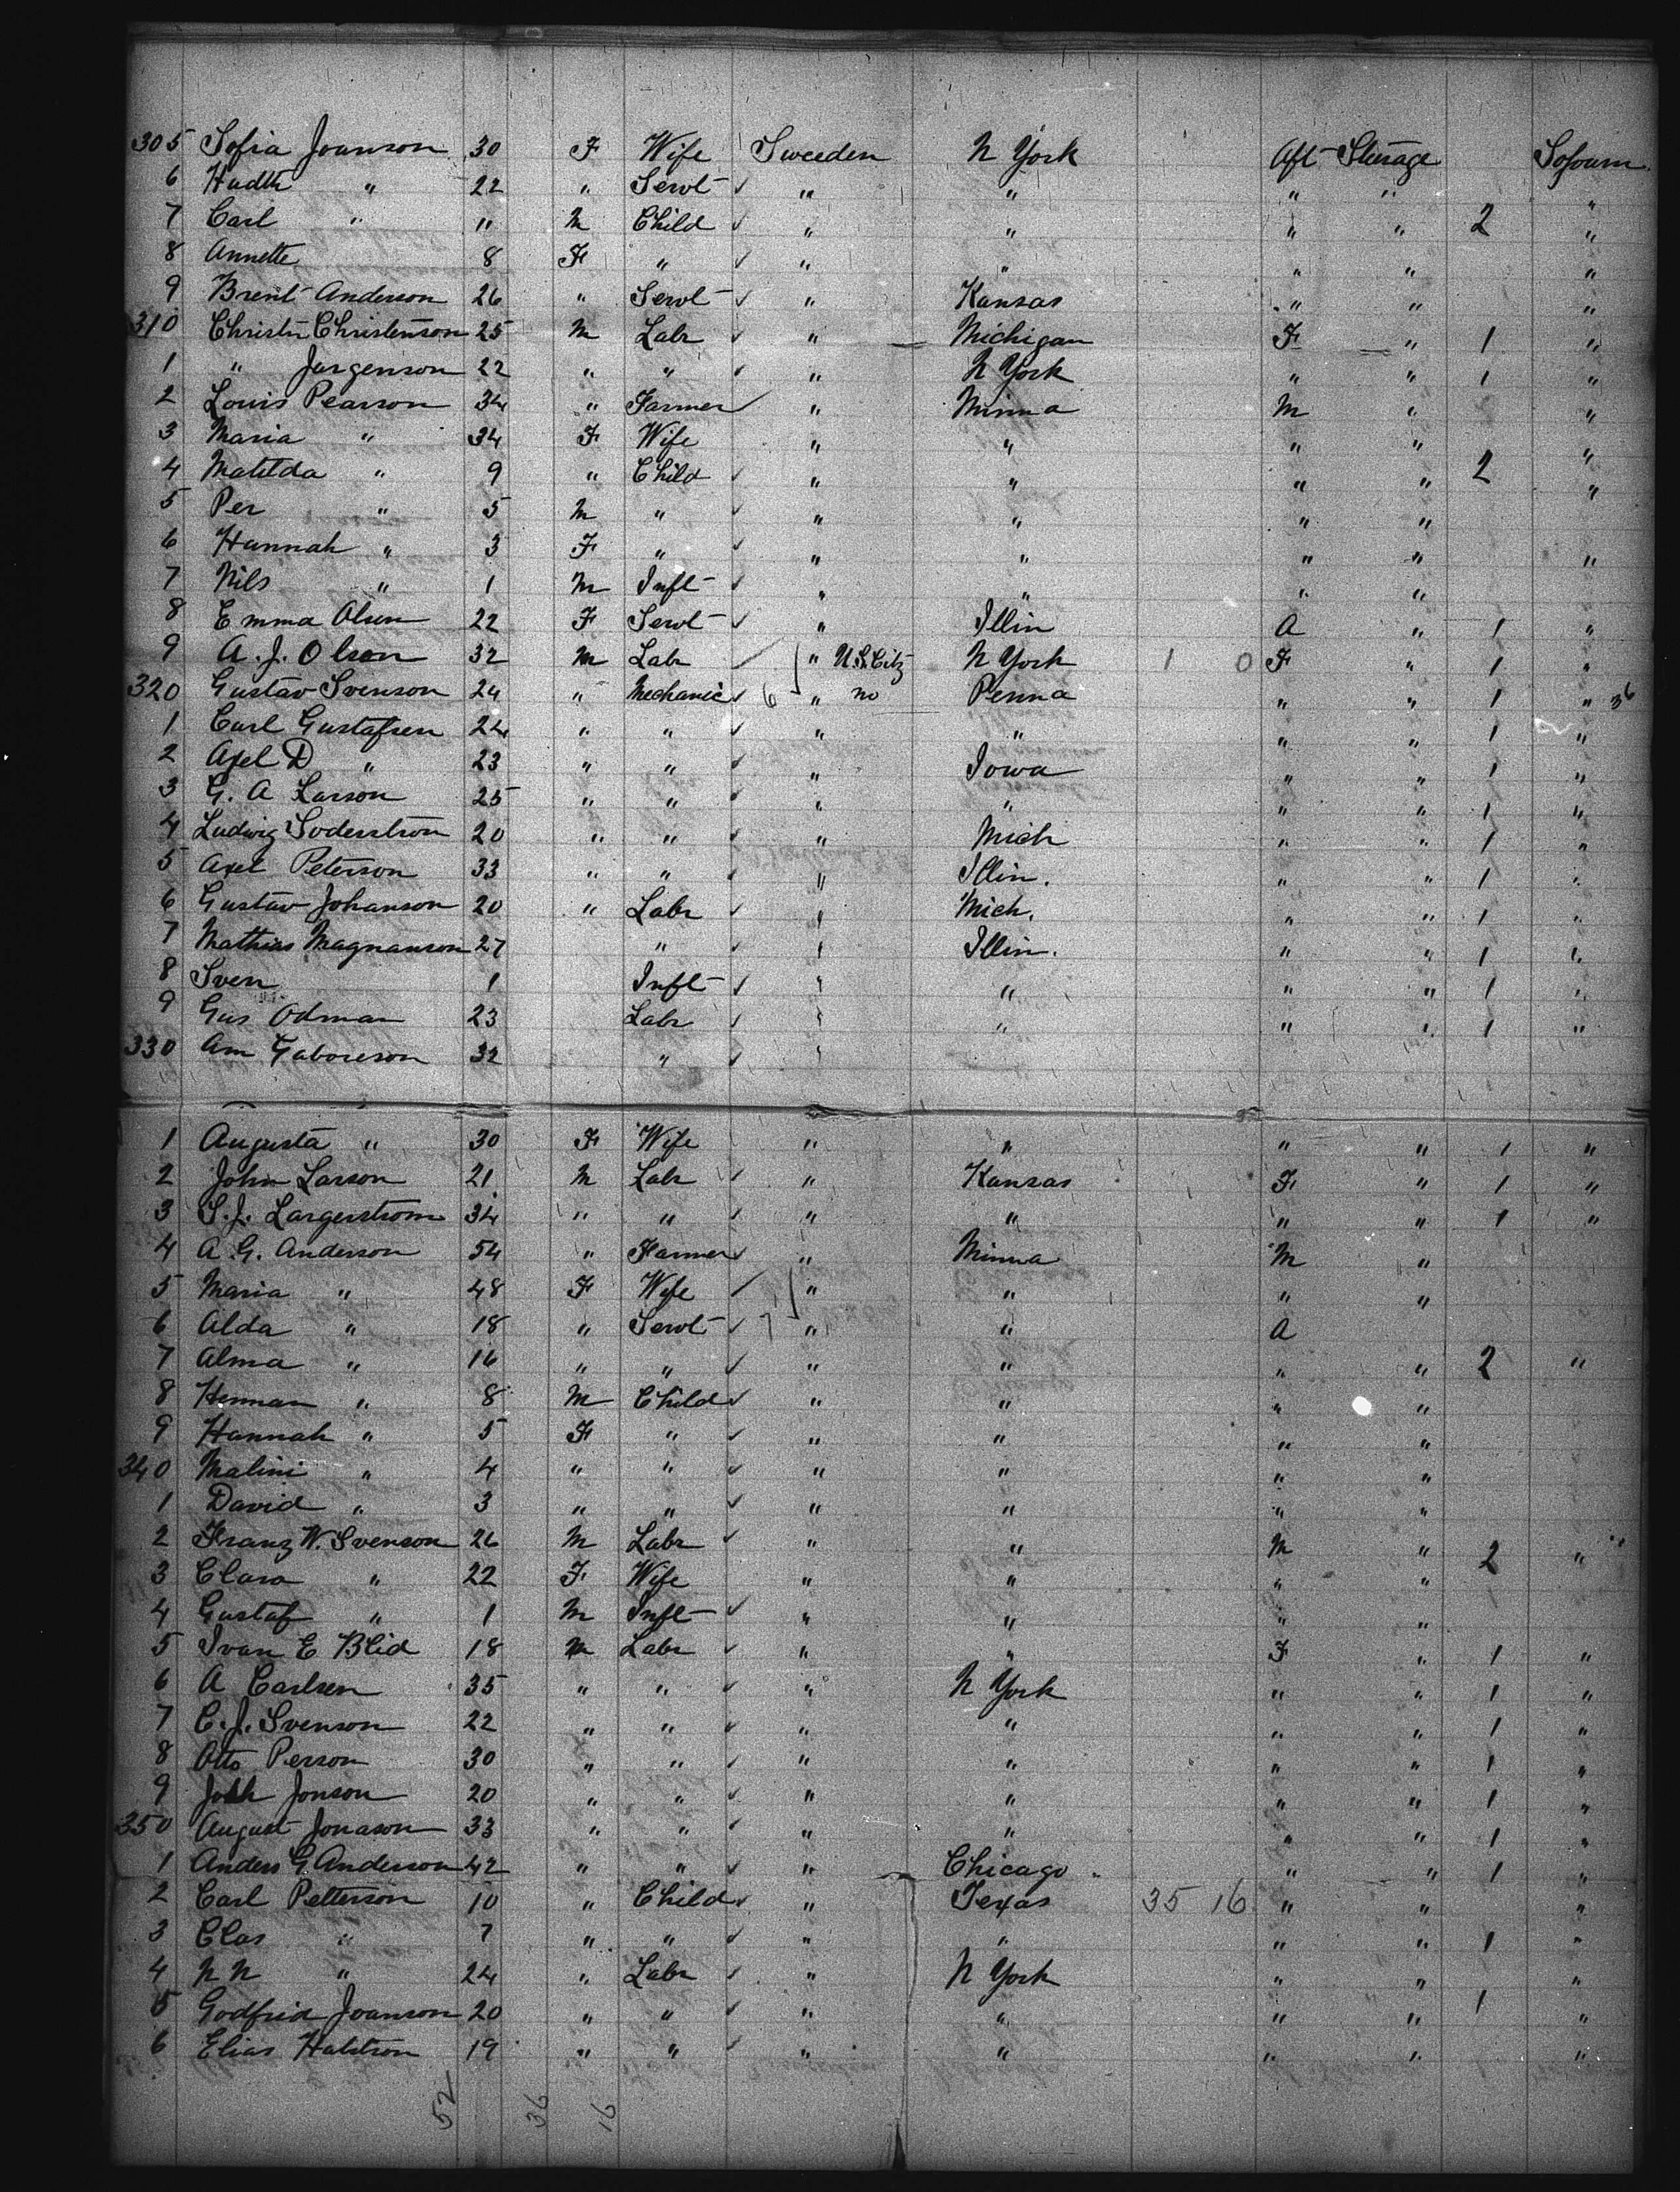 305 Sofia Joanson 30 F Wife Sweeden N York Aft Sterage Sojourn
6 Hudth " 22 " Servt " " " " "
7 Carl " " M Child " " " " 2 "
8 Annette 8 F " " " " " "
9 Brent Anderson 26 " Servt " Kansas " " "
310 Christn Christenson 25 M Labr " Michigan F " 1 "
1 " Jorgenson 22 " " " N York " " 1 "
2 Louis Pearson 34 " Farmer " Minna M " "
3 Maria " 34 F Wife " " " " "
4 Matilda " 9 " Child " " " " 2 "
5 Per " 5 M " " " " "
6 Hannah " 3 F " " " " " "
7 Nils " 1 M Inft " " " "
8 Emma Olsen 22 F Servt " Illin A " 1 "
9 A. J. Olson 32 M Labr " U.S. Citz N York 1 0 F " 1 "
320 Gustav Svenson 24 " Mechanic 6 " no Penna " " 1 " 36
1 Carl Gustafsen 24 " " " " " " 1 "
2 Axel D " 23 " " " Iowa " " 1 "
3 G. A Larson 25 " " " " " " 1 "
4 Ludwig Soderstron 20 " " " Mich " " 1 "
5 Axel Peterson 33 " " " Illin. " " 1 "
6 Gustav Johanson 20 " Labr " Mich. " " 1 "
7 Mathias Magnanson 27 " " Illin. " " 1 "
8 Sven 1 Inft " " " " 1 "
9 Gus Odman 23 Labr " " " " 1 "
330 Am Gaboreson 32 " "
1 Augusta " 30 F Wife " " " " 1 "
2 John Larson 21 M Labr " Kansas F " 1 "
3 S. J. Largerstrom 34 " " " " " " 1 "
4 A. G. Anderson 54 " Farmer " Minna M "
5 Maria " 48 F Wife " " " "
6 Alda " 18 " Servt 7 " " A
7 Alma " 16 " " " " " " 2 "
8 Herman " 8 M Child " " " "
9 Hannah " 5 F " " " " "
340 Malini " 4 " " " " " "
1 David " 3 " " " " " "
2 Franz W. Svenson 26 M Labr " " M " 2 "
3 Clara " 22 F Wife " " " "
4 Gustaf " 1 M Inft " " " "
5 Ivan E Blid 18 M Labr " " F " 1 "
6 A Carlsen 35 " " " N York " " 1 "
7 C. J. Svenson 22 " " " " " " 1 "
8 Otto Person 30 " " " " " " 1 "
9 Joth Jonson 20 " " " " " " 1 "
350 August Jonason 33 " " " " " " 1 "
1 Anders G. Anderson 42 " " " Chicago " " 1 "
2 Carl Petterson 10 " Child " Texas 35 16 " " "
3 Clas " 7 " " " " " " 1 "
4 N N " 24 " Labr " N York " " "
5 Godfrid Joanson 20 " " " " " " 1 "
6 Elias Halstron 19 " " " " " " "
52 36 16